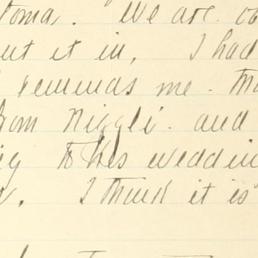 toma. "We are co
ut it in, I had
reminds me. Th
from Niggli. and
ig to his weddin
I think it is